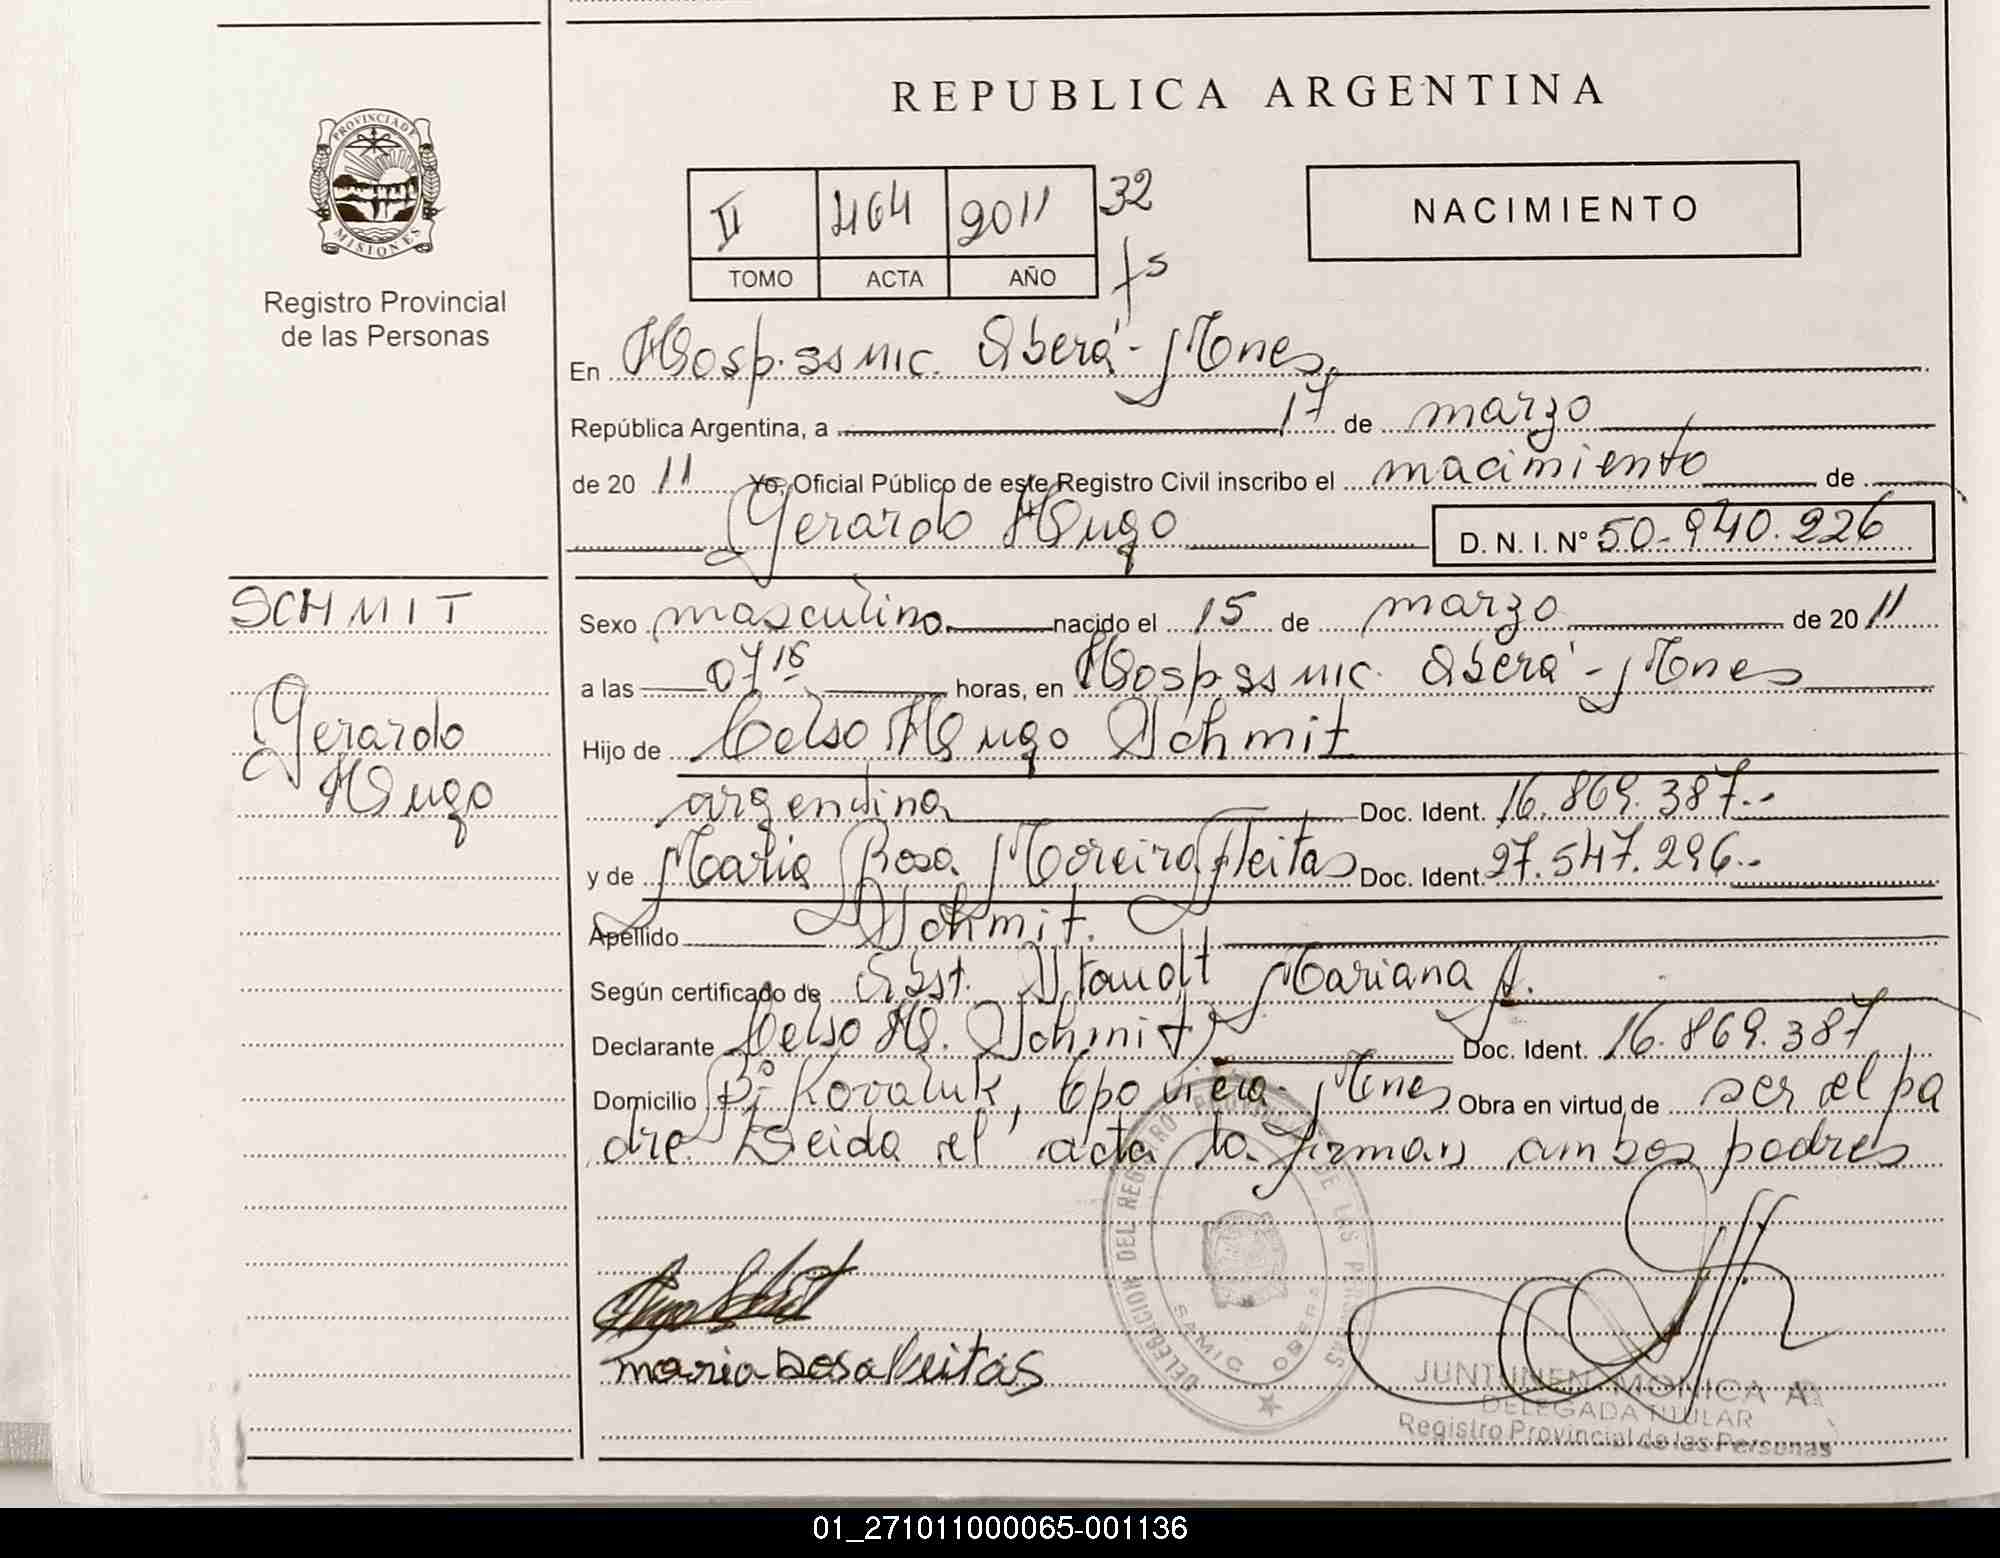 REPUBLICA ARGENTINA
PROVINCIA DE
MISIONES
Registro Provincial
de las Personas
II 464 2011 32
TOMO ACTA AÑO fs
NACIMIENTO
En Hosp. SS MIC. Oberá - Mnes,
República Argentina, a 17 de marzo
de 20 11 Yo, Oficial Público de este Registro Civil inscribo el nacimiento de
Gerardo Hugo D. N. I. N° 50.940.226
SCHMIT
Gerardo
Hugo
Sexo masculino. nacido el 15 de marzo de 20 11
a las 07 15 horas, en Hosp SS MIC. Oberá - Mnes
Hijo de Celso Hugo Schmit
argentina Doc. Ident. 16.869.387..
y de Maria Rosa Moreira Fleitas Doc. Ident. 27.547.296..
Apellido Schmit.
Según certificado de Obst. Staudt Mariana A.
Declarante Celso H. Schmit Doc. Ident. 16.869.387
Domicilio Bº Kovaluk, Cpo Viera - Mnes Obra en virtud de ser el pa
dre. Leida el acta la firman ambos padres
DELEGACION DEL REGISTRO PROVINCIAL DE LAS PERSONAS
SAMIC OBERA
maria Rosa fleitas
JUNTUNEN MONICA A.
DELEGADA TITULAR
Registro Provincial de las Personas
01_271011000065-001136